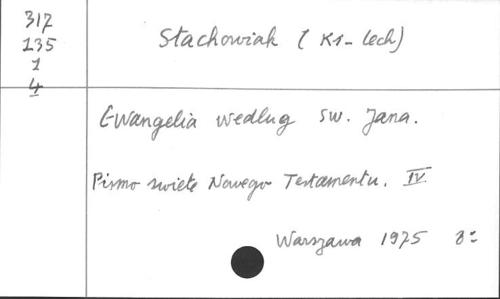 317
135
1
4
Stachowiak (Ks. Lech)
Ewangelia według św. Jana.
Pismo święte Nowego Testamentu. IV
Warszawa 1975 8º